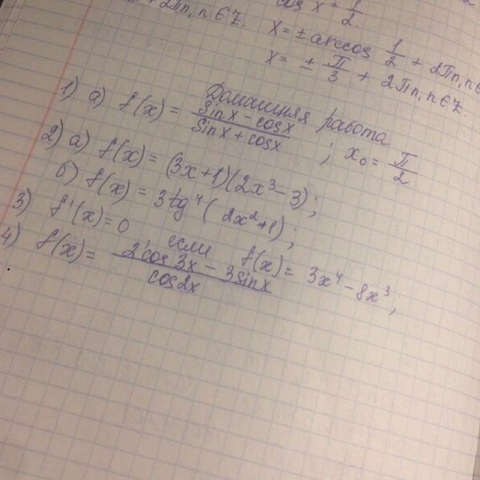 cos x = 1/2
+ 2πn, n ∈ Z. x = ± arccos 1/2 + 2πn, n ∈
x = ± π/3 + 2πn, n ∈ Z.
Домашняя работа
1) а) f(x) = (sin x - cos x)/(sin x + cos x) ; x₀ = π/2
2) а) f(x) = (3x+1)(2x³-3);
б) f(x) = 3tg⁴(2x²+1);
3) f'(x)=0 если f(x) = 3x⁴-8x³,
4) f(x) = (2cos3x - 3sinx)/cos2x